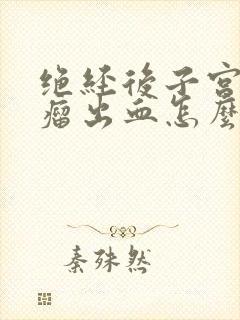 绝经後子宫
瘤出血怎麽
秦殊然